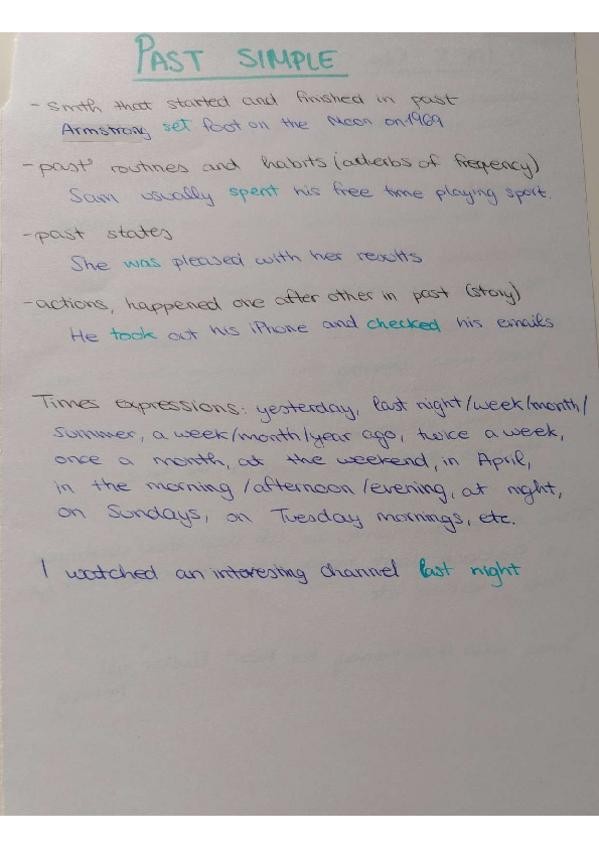 PAST SIMPLE
- smth that started and finished in past
Armstrong set foot on the Moon on 1969
- past routines and habits (adverbs of freqency)
Sam usually spent his free time playing sport.
- past states
She was pleased with her results
- actions, happened one after other in past (story)
He took out his iPhone and checked his emails
Times expressions: yesterday, last night/week/month/
summer, a week/month/year ago, twice a week,
once a month, at the weekend, in April,
in the morning/afternoon/evening, at night,
on Sundays, on Tuesday mornings, etc.
I watched an interesting channel last night